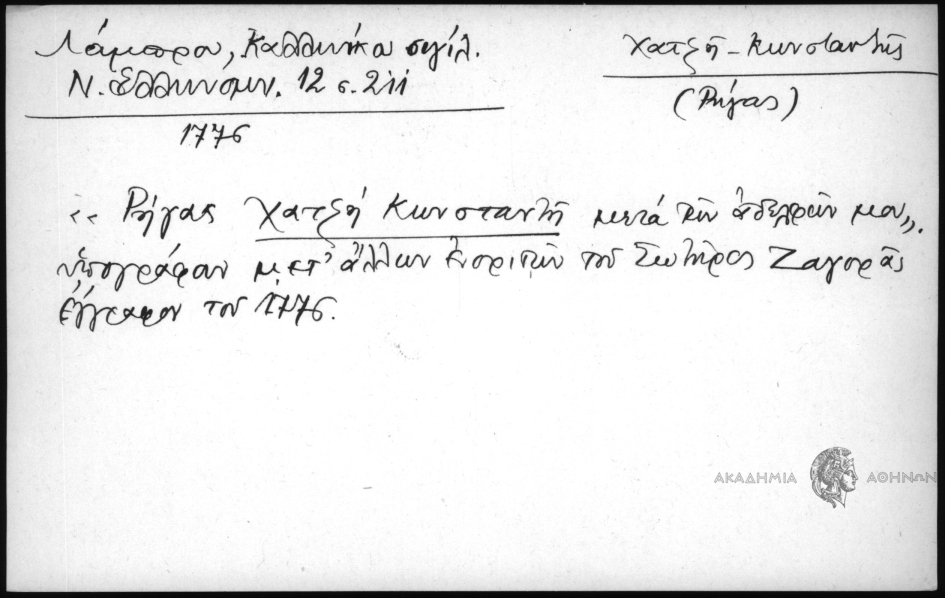 Λάμπρου, Καλλινίκου σιγίλ.
Ν. Ελληνομν. 12 σ. 211
1776
Χατζῆ - Κωνσταντῆς
(Ρήγας)
«Ρήγας Χατζῆ Κωνσταντῆ μετά τῶν ἀδελφῶν μου».
ὑπογράφουν μετ' ἄλλων ἐνοριτῶν τοῦ Σωτῆρος Ζαγορᾶς
ἔγγραφον τοῦ 1776.
ΑΚΑΔΗΜΙΑ ΑΘΗΝΩΝ